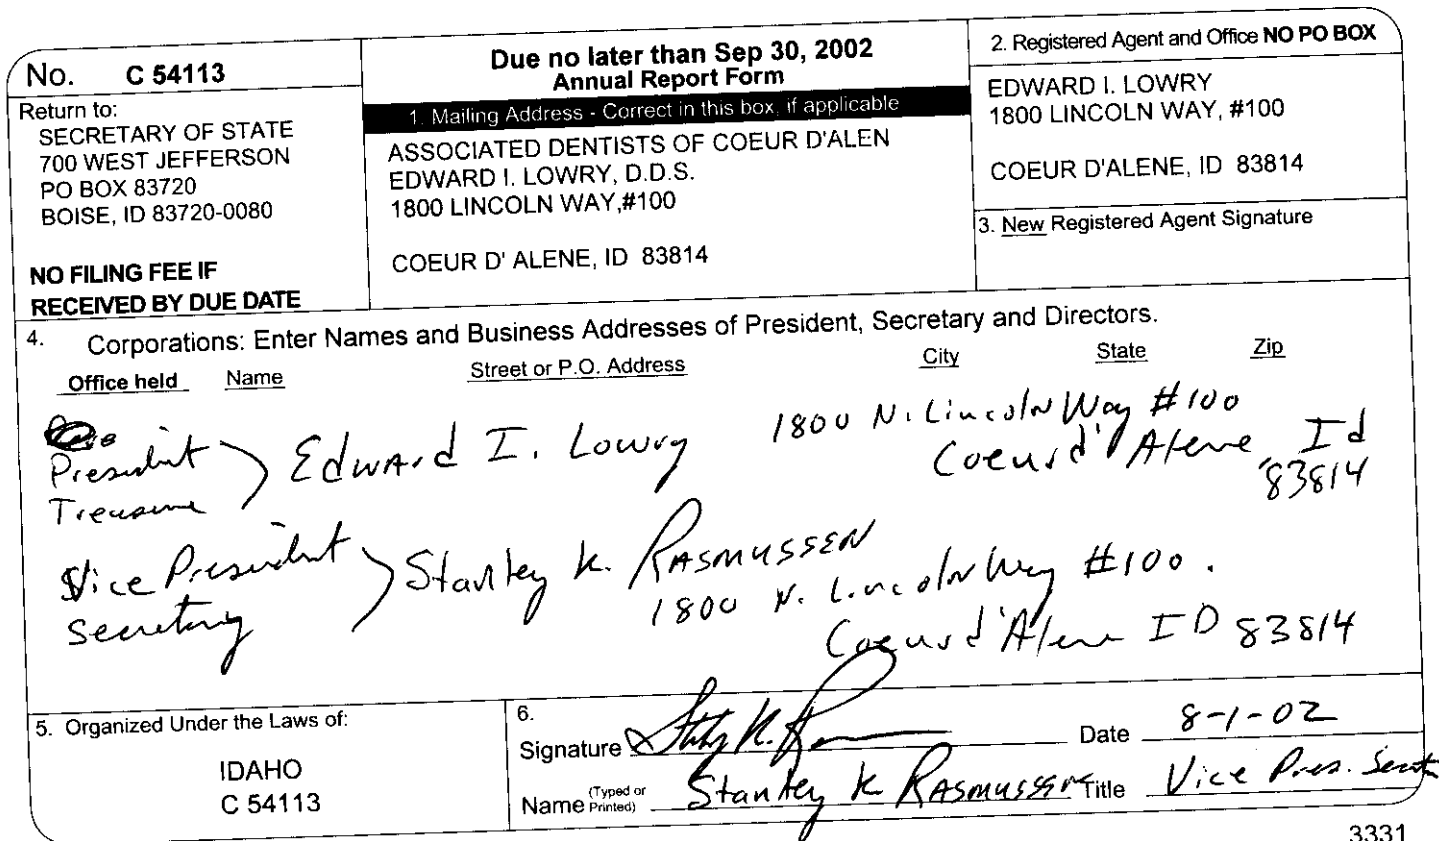 No. C 54113
Return to:
SECRETARY OF STATE
700 WEST JEFFERSON
PO BOX 83720
BOISE, ID 83720-0080
NO FILING FEE IF
RECEIVED BY DUE DATE
Due no later than Sep 30, 2002
Annual Report Form
1. Mailing Address - Correct in this box, if applicable
ASSOCIATED DENTISTS OF COEUR D'ALEN
EDWARD I. LOWRY, D.D.S.
1800 LINCOLN WAY,#100
COEUR D' ALENE, ID 83814
2. Registered Agent and Office NO PO BOX
EDWARD I. LOWRY
1800 LINCOLN WAY, #100
COEUR D'ALENE, ID 83814
3. New Registered Agent Signature
4. Corporations: Enter Names and Business Addresses of President, Secretary and Directors.
Office held Name Street or P.O. Address City State Zip
President
Treasurer
Edward I. Lowry
1800 N. Lincoln Way #100
Coeur d'Alene, Id
83814
Vice President
Secretary
Stanley K. Rasmussen
1800 N. Lincoln Way #100.
Coeur d'Alene ID 83814
5. Organized Under the Laws of:
IDAHO
C 54113
6.
Signature
Date 8-1-02
Name (Typed or Printed) Stanley K Rasmussen Title Vice Pres.
3331